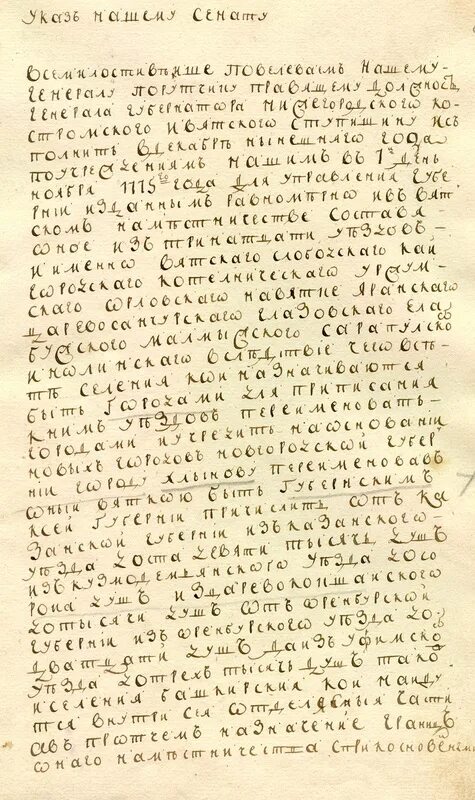 Указъ нашему Сенату
Всемилостивѣйше повелеваемъ нашему
генералу порутчику правящему должность
генерала губернатора нижегородского ко-
стромского и вятского ступишину ис
полнить в декабрѣ нынешняго года
поучреждениямъ нашимъ въ 7 день
ноября 1775го года для управления губе
рніи изданнымъ равномѣрно и въ вят
скомъ намѣстничестве составя
оное изъ тринатцати уѣздовъ
и именно вятского слобоцкаго кай
городского котелническаго уржум-
скаго орловскаго навятке яранскаго
царевосанчурскаго глазовскаго ела
бужского малмыжского сарапулско
и нолинскаго вслѣдствіе чего всѣ
тѣ селения кои назначиваются
быть городами для приписания
книмъ уѣздовъ переименовать
городами и учредить наосновании
новыхъ городовъ новгородской губер
ніи городу хлынову переименовавъ
оный вяткою быть губернскимъ
ксей губерніи причислить отъ ка
занской губерніи изъ казанского
уѣзда до ста девяти тысячь душъ
изъ кузмодемьянского уѣзда до со
рока душъ и царевококшайского
до тысячи душъ отъ оренбургской
губерніи изъ оренбургского уѣзда до
дватцати душъ да изъ уфимско
уѣзда до трехъ тысячь душъ тако
и селения башкирския кои найду
тся внутри сея отделяемыя части
а въ протчемъ назначение границъ
онаго намѣстничества с прикосновенными